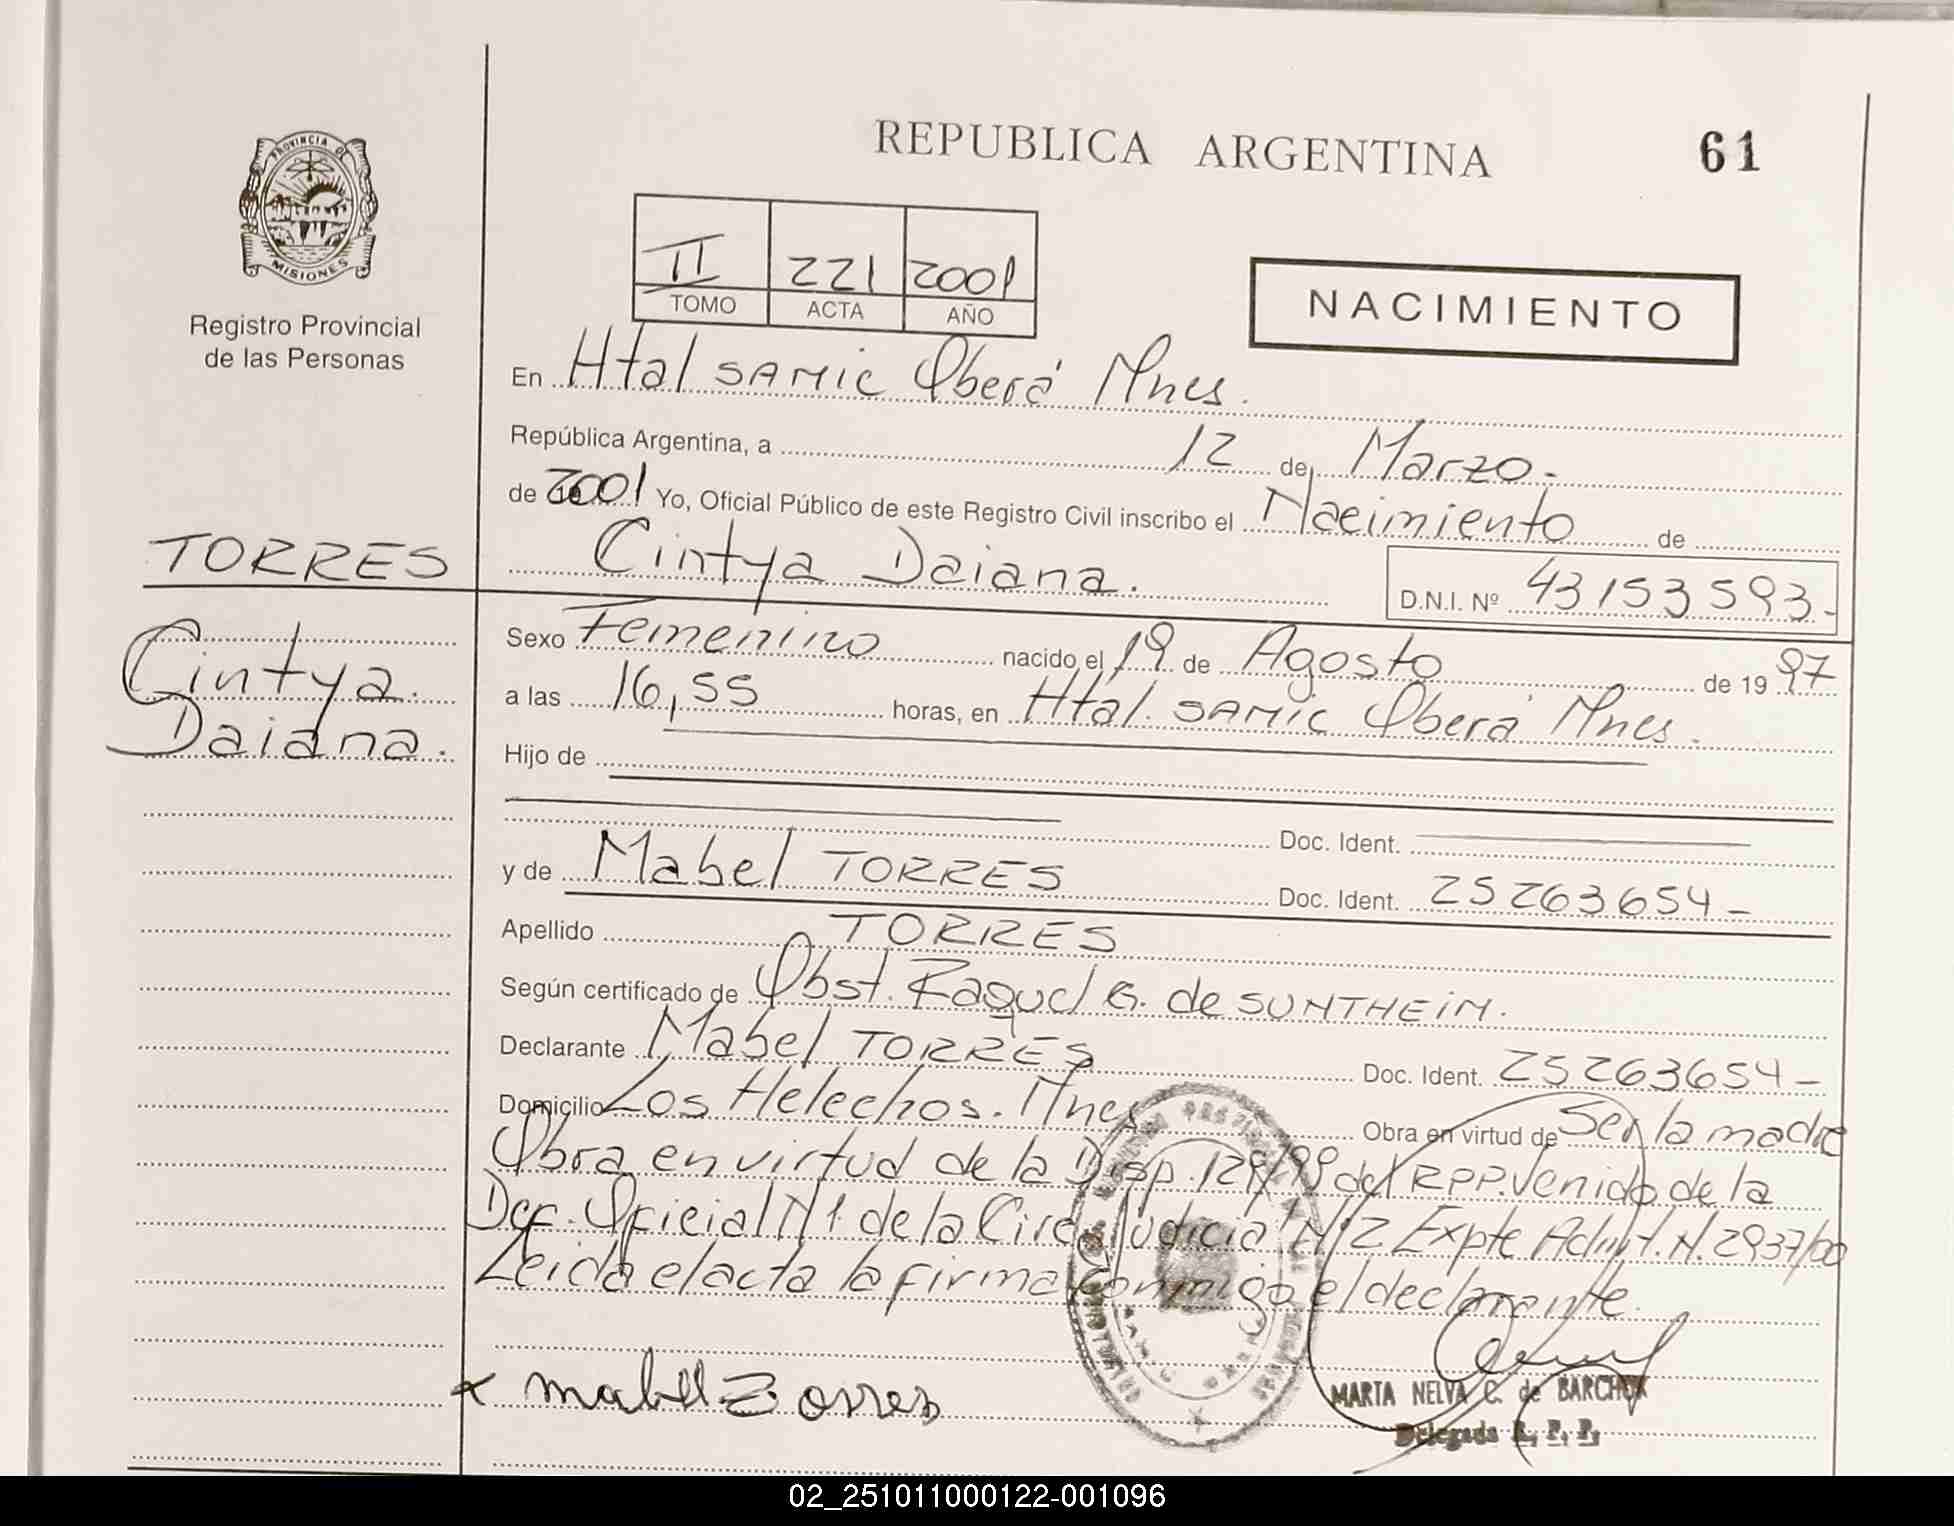 PROVINCIA DE
MISIONES
Registro Provincial
de las Personas
REPUBLICA ARGENTINA
61
II 221 2001
TOMO ACTA AÑO
NACIMIENTO
En Htal SAMIC Oberá Mnes.
República Argentina, a 12 de Marzo.
de 2001 Yo, Oficial Público de este Registro Civil inscribo el Nacimiento de
TORRES
Cintya Daiana.
D.N.I. Nº 43153593-
Cintya
Daiana.
Sexo Femenino nacido el 19 de Agosto de 1997
a las 16,55 horas, en Htal. SAMIC Oberá Mnes.
Hijo de
Doc. Ident.
y de Mabel TORRES Doc. Ident. 25263654-
Apellido TORRES
Según certificado de Obst. Raquel G. de SUNTHEIM.
Declarante Mabel TORRES Doc. Ident. 25263654-
Domicilio Los Helechos. Mnes Obra en virtud de Ser la madre
Obra en virtud de la Disp. 129/99 del RPP. Venido de la
Def. Oficial N1. de la Circ. Judicial N2 Expte Admt. N. 2937/00
Leida el acta la firma conmigo el declarante.
x mabel Torres
MARTA NELVA C. de BARCHUK
Delegada R. P. P.
02_251011000122-001096